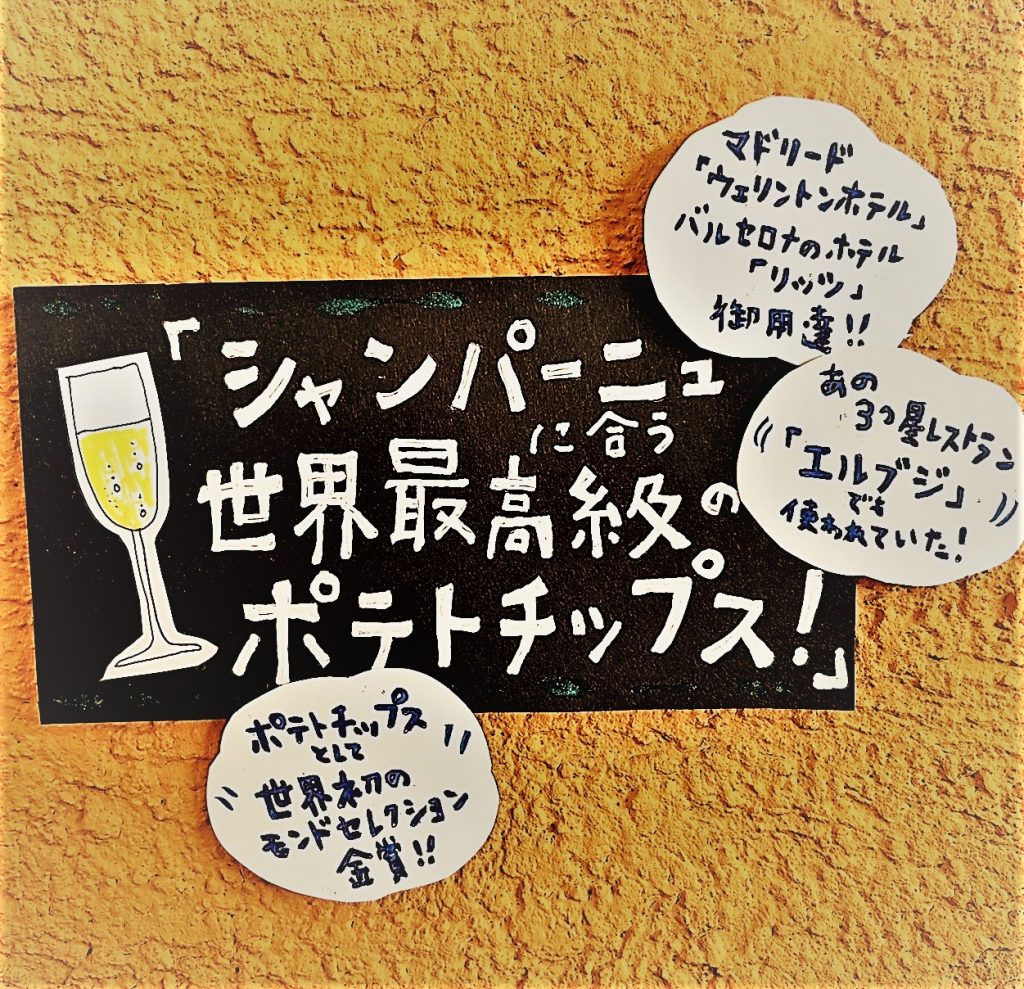 「シャンパーニュ
に合う
世界最高級の
ポテトチップス!」
マドリード
「ウェリントンホテル」
バルセロナのホテル
「リッツ」
御用達!!
あの
3つ星レストラン
「エルブジ」
でも
使われていた!
ポテトチップス
として
世界初の
モンドセレクション
金賞!!